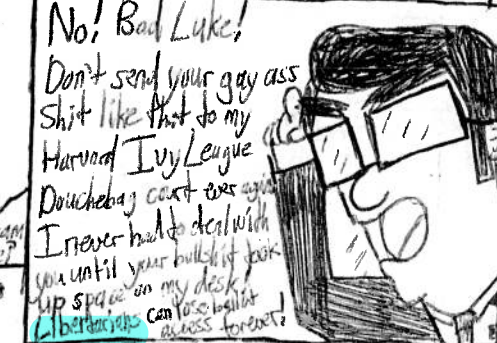 No! Bad Luke!
Don't send your gay ass
Shit like that to my
Harvard Ivy League
Douchebag court ever again
I never had to deal with
you until your bullshit took
up space on my desk!
Libertarians can lose ballot
access forever!